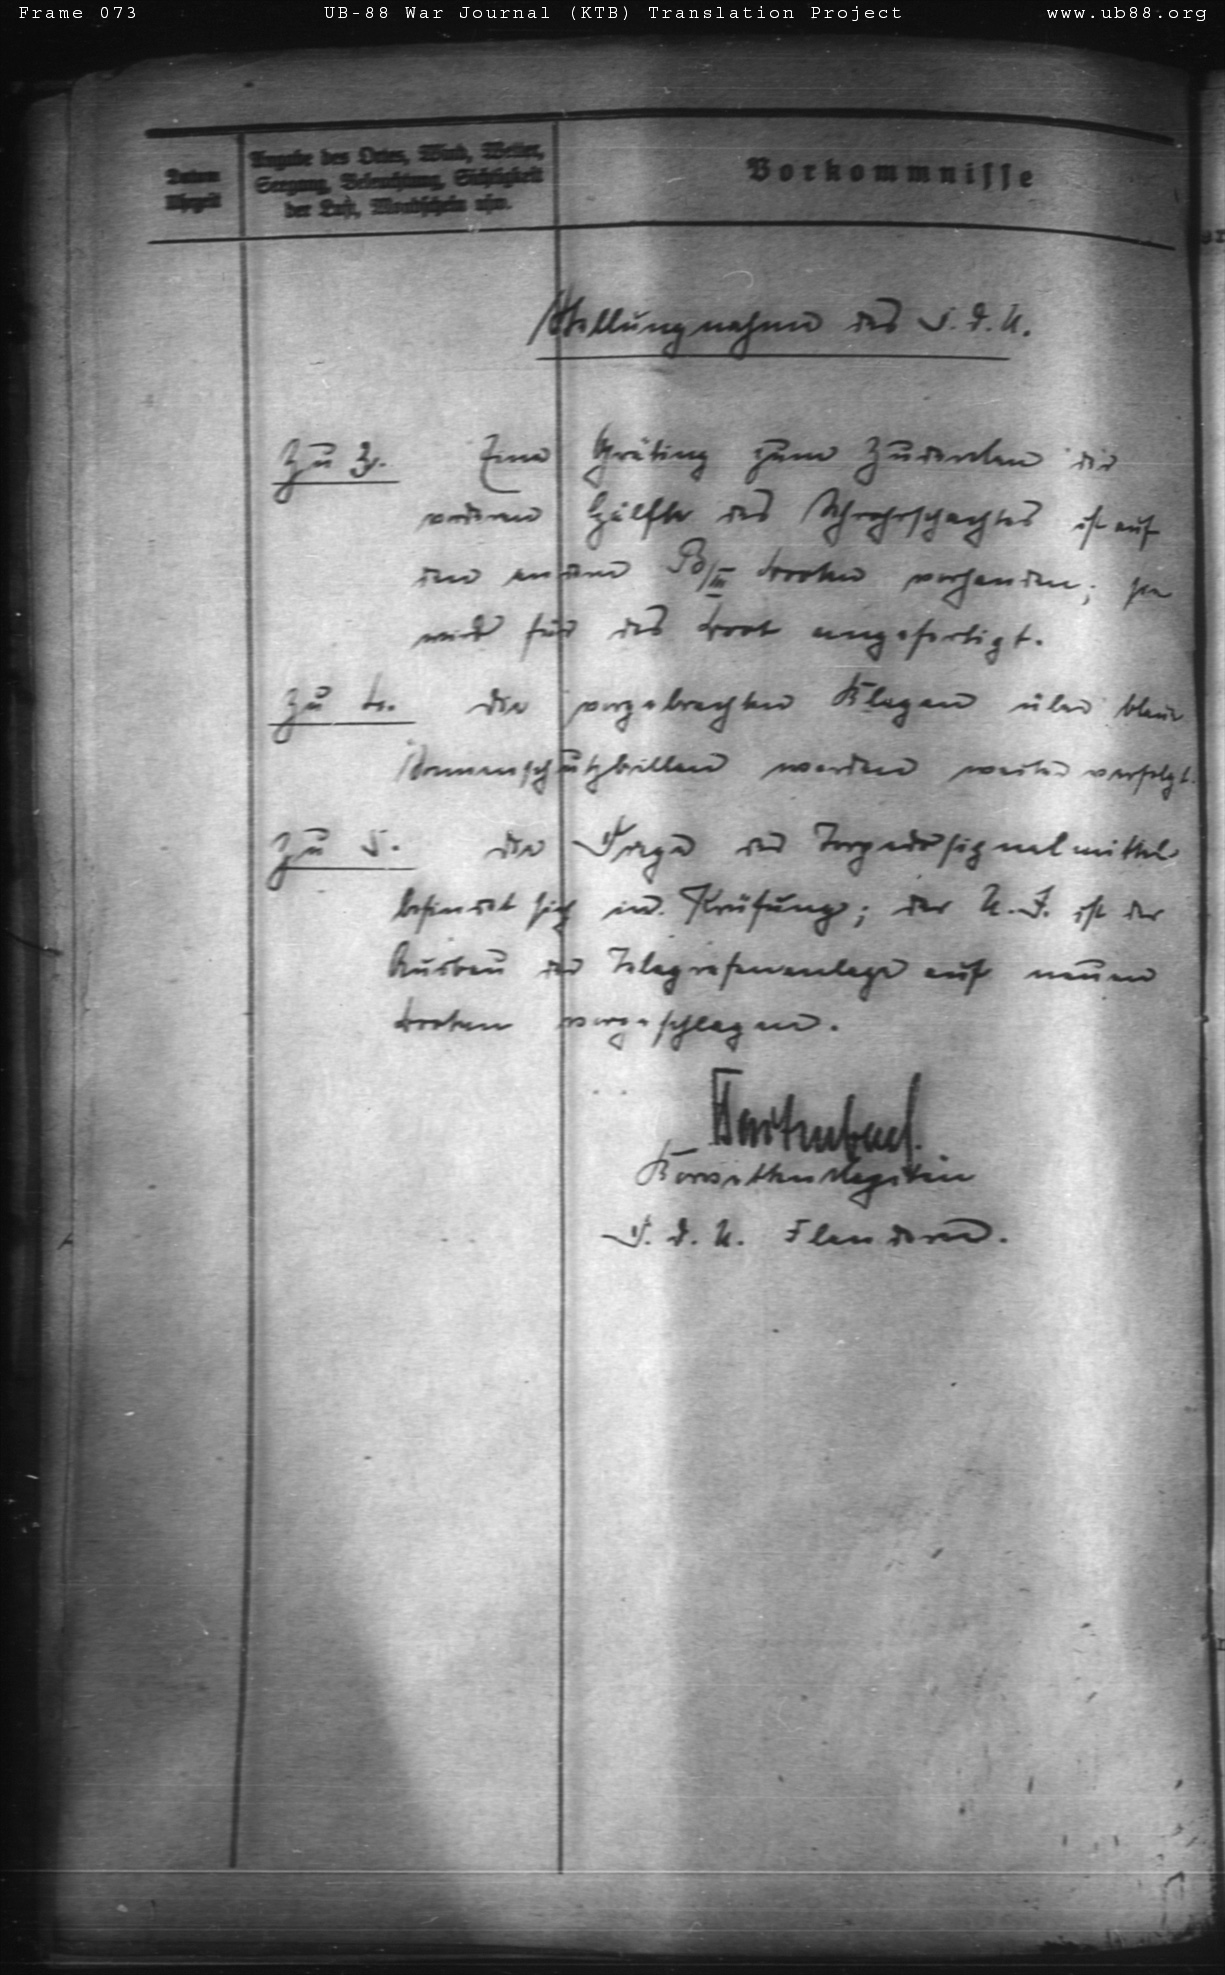 Frame 073 UB-88 War Journal (KTB) Translation Project www.ub88.org
Datum Angabe des Ortes, Wind, Wetter, Vorkommnisse
Uhrzeit Seegang, Beleuchtung, Sichtigkeit
der Luft, Mondschein usw.
Stellungnahme des F.d.U.
Zu 3. Eine Gräting zum Zudecken der
vorderen Hälfte des Sehrohrschachtes ist auf
den anderen B/III booten vorhanden; sie
wird für das boot angefertigt.
Zu 4. die vorgebrachten Klagen über blaue
Sonnenschutzbrillen werden weiter verfolgt.
Zu 5. die Frage der Torpedosignalmittel
befindet sich in Prüfung; der U.I. ist der
Ausbau der Telegrafenanlage auf neuen
booten vorgeschlagen.
Bartenbach.
Korvettenkapitän
F.d.U. Flandern.